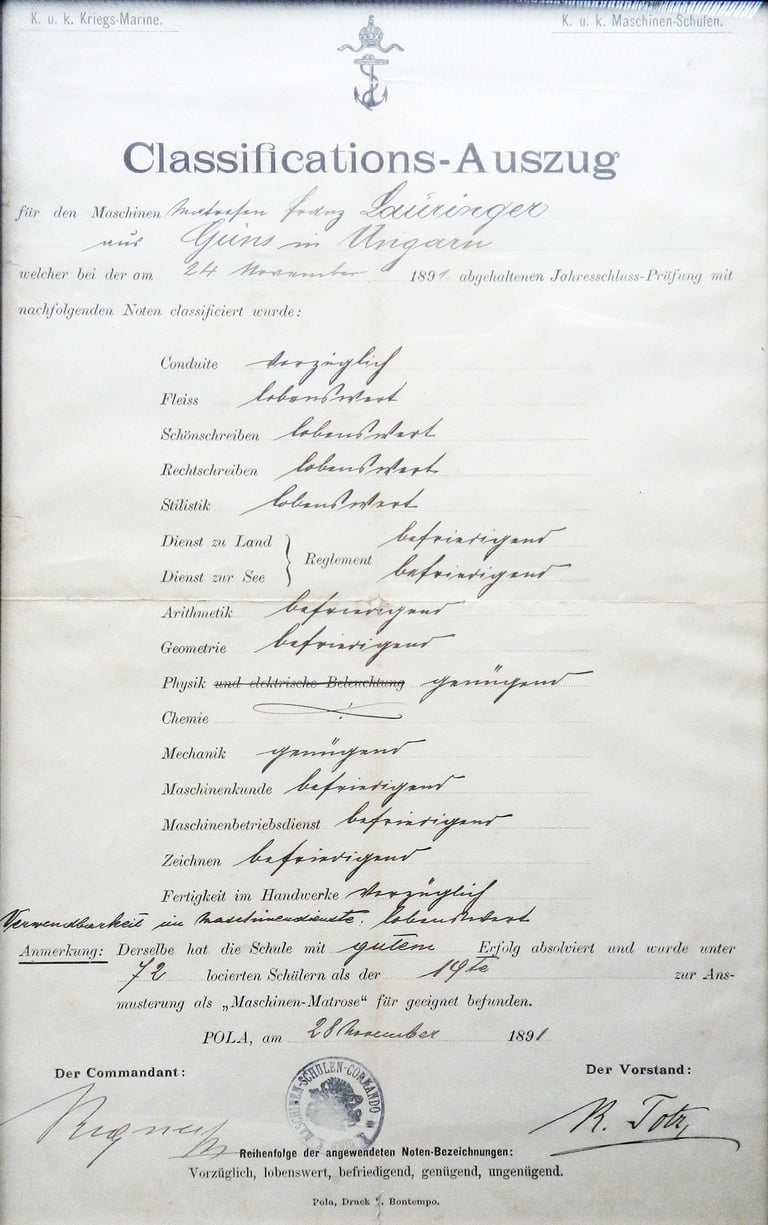 K. u. k. Kriegs-Marine.
K. u. k. Maschinen-Schulen.
Classifications-Auszug
für den Maschinen Matrosen Franz Lauringer
aus Güns in Ungarn
welcher bei der am 24 November 1891. abgehaltenen Jahresschluss-Prüfung mit
nachfolgenden Noten classificiert wurde:
Conduite vorzüglich
Fleiss lobenswert
Schönschreiben lobenswert
Rechtschreiben lobenswert
Stilistik lobenswert
Dienst zu Land } Reglement befriedigend
Dienst zur See befriedigend
Arithmetik befriedigend
Geometrie befriedigend
Physik und elektrische Beleuchtung genügend
Chemie
Mechanik genügend
Maschinenkunde befriedigend
Maschinenbetriebsdienst befriedigend
Zeichnen befriedigend
Fertigkeit im Handwerke Vorzüglich
Verwendbarkeit im Maschinendienste: lobenswert
Anmerkung: Derselbe hat die Schule mit gutem Erfolg absolviert und wurde unter
72 locierten Schülern als der 19te zur Aus-
musterung als „Maschinen-Matrose“ für geeignet befunden.
POLA, am 28 November 1891
Der Commandant:
Der Vorstand:
MASCHINEN-SCHULEN-COMMANDO
Reihenfolge der angewendeten Noten-Bezeichnungen:
Vorzüglich, lobenswert, befriedigend, genügend, ungenügend.
Pola, Druck Bontempo.